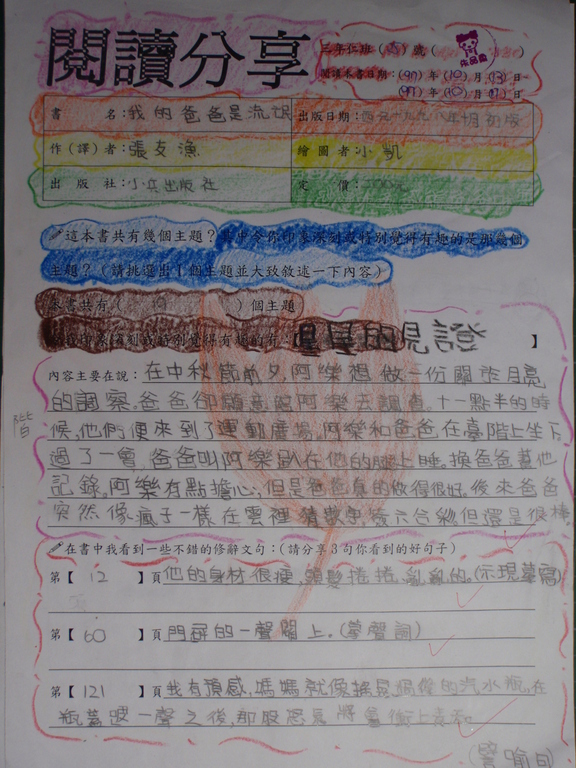 閱讀分享
三年仁班( )號
閱讀本書日期:(97)年(10)月(13)日
(97)年(10)月(17)日
書名:我的爸爸是流氓 出版日期:西元一九九八年十月初版
作(譯)者:張友漁 繪圖者:小凱
出版社:小兵出版社 定價:
這本書共有幾個主題?其中令你印象深刻或特別覺得有趣的是那幾個
主題?(請挑選出1個主題並大致敘述一下內容)
本書共有( )個主題
印象深刻或特別覺得有趣的有:星星的見證】
內容主要在說:在中秋節前夕,阿樂想做一份關於月亮
的調察。爸爸卻願意陪阿樂去調查。十一點半的時
候,他們便來到了運動廣場。阿樂和爸爸在臺階上坐下
過了一會,爸爸叫阿樂趴在他的腿上睡。換爸爸幫他
記錄。阿樂有點擔心,但是爸爸真的做得很好。後來爸爸
突然像瘋子一樣在雲裡猜數字,簽六合彩,但還是很棒
在書中我看到一些不錯的修辭文句:(請分享3句你看到的好句子)
第【12】頁他的身材很瘦,頭髮捲捲、亂亂的。(示現摹寫)
第【60】頁門砰的一聲關上。(摹聲詞)
第【121】頁我有預感,媽媽就像搖晃過後的汽水瓶,在
瓶蓋啵一聲之後,那股怒氣將會衝上青天
(譬喻句)